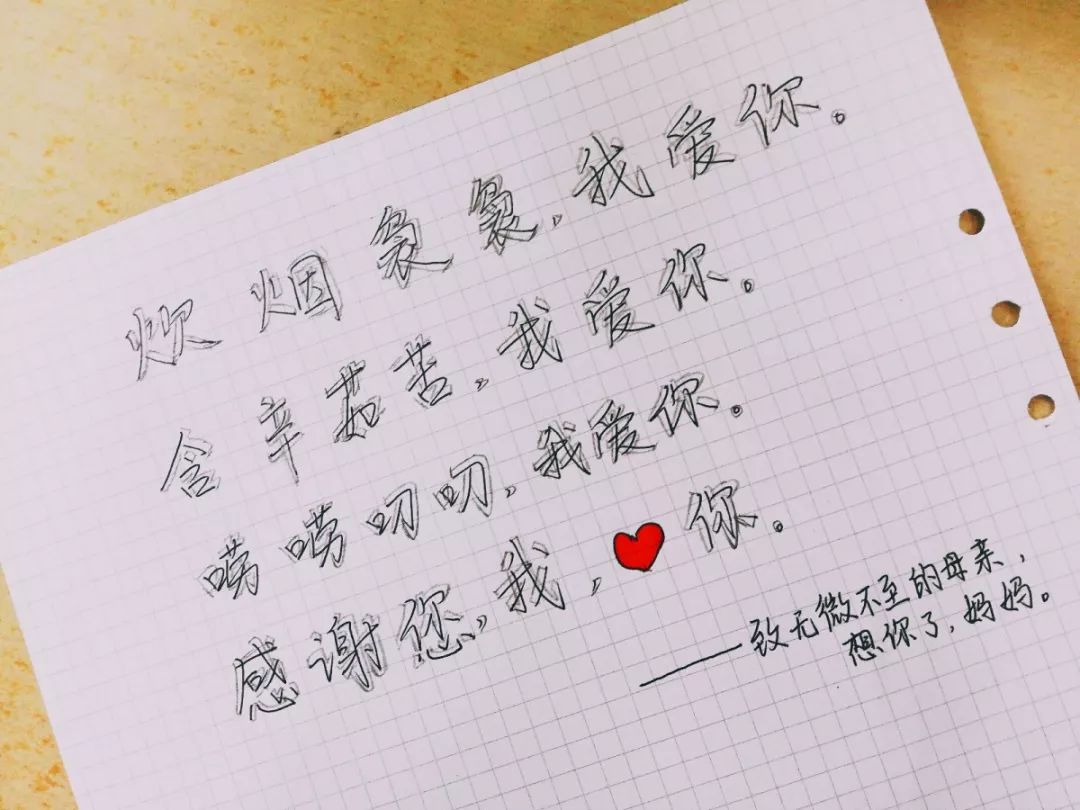 炊烟袅袅,我爱你。
含辛茹苦,我爱你。
唠唠叨叨,我爱你。
感谢您,我,❤你。
——致无微不至的母亲,
想你了,妈妈。